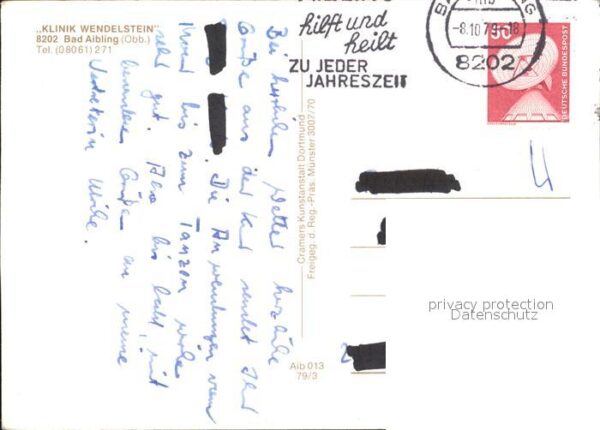 „KLINIK WENDELSTEIN"
8202 Bad Aibling (Obb.)
Tel. (08061) 271
hilft und
heilt
ZU JEDER
JAHRESZEIT
-8.10.79-18
8202
50
DEUTSCHE BUNDESPOST
Bei herrlichem Wetter herzliche
Grüße aus der Kur sendet Ihr
Die Anwendungen vom
Moor bis zum Tanzen
sehr gut. Also bis bald, mit
besonderen Grüßen an meine
Vertreterin
Cramers Kunstanstalt Dortmund
Freigeg. d. Reg.-Präs. Münster 3007/70
Aib 013
79/3
privacy protection
Datenschutz